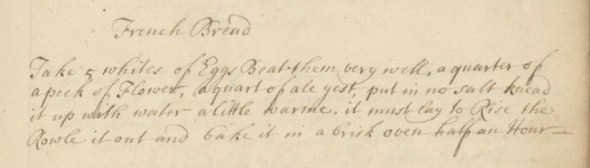 French Bread
Take 5 whites of Eggs Beat them very well, a quarter of
a peck of Flower, a quart of ale yest, put in no salt knead
it up with water a little warme. it must lay to Rise the
Rowle it out and bake it in a brisk oven half an Hour